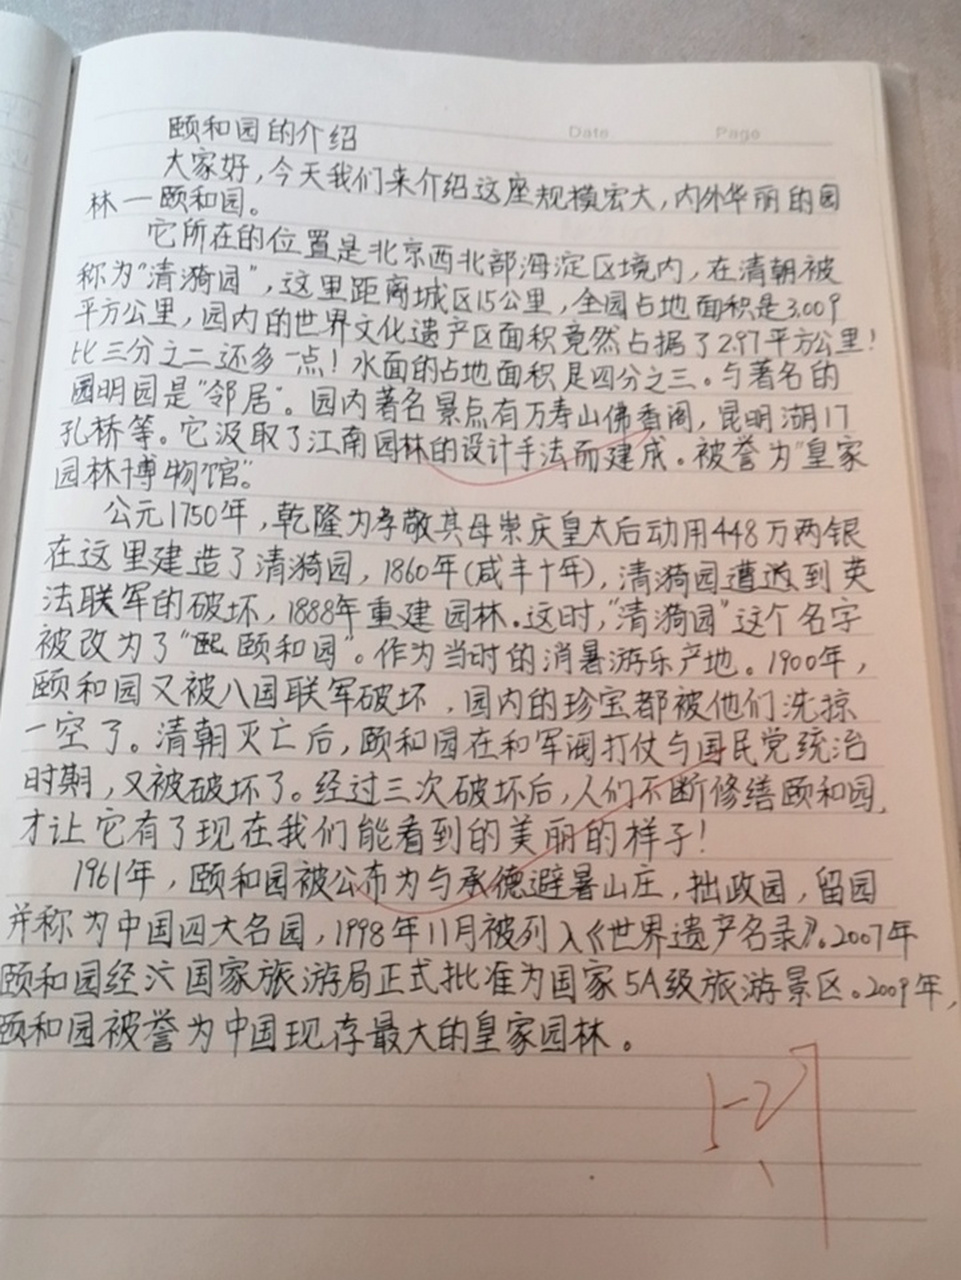 Date Page
颐和园的介绍
大家好，今天我们来介绍这座规模宏大，内外华丽的园
林一颐和园。
它所在的位置是北京西北部海淀区境内，在清朝被
称为“清漪园”，这里距离城区15公里，全园占地面积是3.009
平方公里，园内的世界文化遗产区面积竟然占据了2.97平方公里！
比三分之二还多一点！水面的占地面积是四分之三。与著名的
圆明园是“邻居”。园内著名景点有万寿山佛香阁，昆明湖17
孔桥等。它汲取了江南园林的设计手法而建成。被誉为“皇家
园林博物馆”
公元1750年，乾隆为孝敬其母崇庆皇太后动用448万两银
在这里建造了清漪园，1860年(咸丰十年)，清漪园遭遇到英
法联军的破坏，1888年重建园林.这时，“清漪园”这个名字
被改为了“颐和园”。作为当时的消暑游乐产地。1900年，
颐和园又被八国联军破坏，园内的珍宝都被他们洗掠
一空了。清朝灭亡后，颐和园在和军阀打仗与国民党统治
时期，又被破坏了。经过三次破坏后，人们不断修缮颐和园，
才让它有了现在我们能看到的美丽的样子！
1961年，颐和园被公布为与承德避暑山庄，拙政园，留园
并称为中国四大名园，1998年11月被列入《世界遗产名录》。2007年
颐和园经国家旅游局正式批准为国家5A级旅游景区。2009年，
颐和园被誉为中国现存最大的皇家园林。